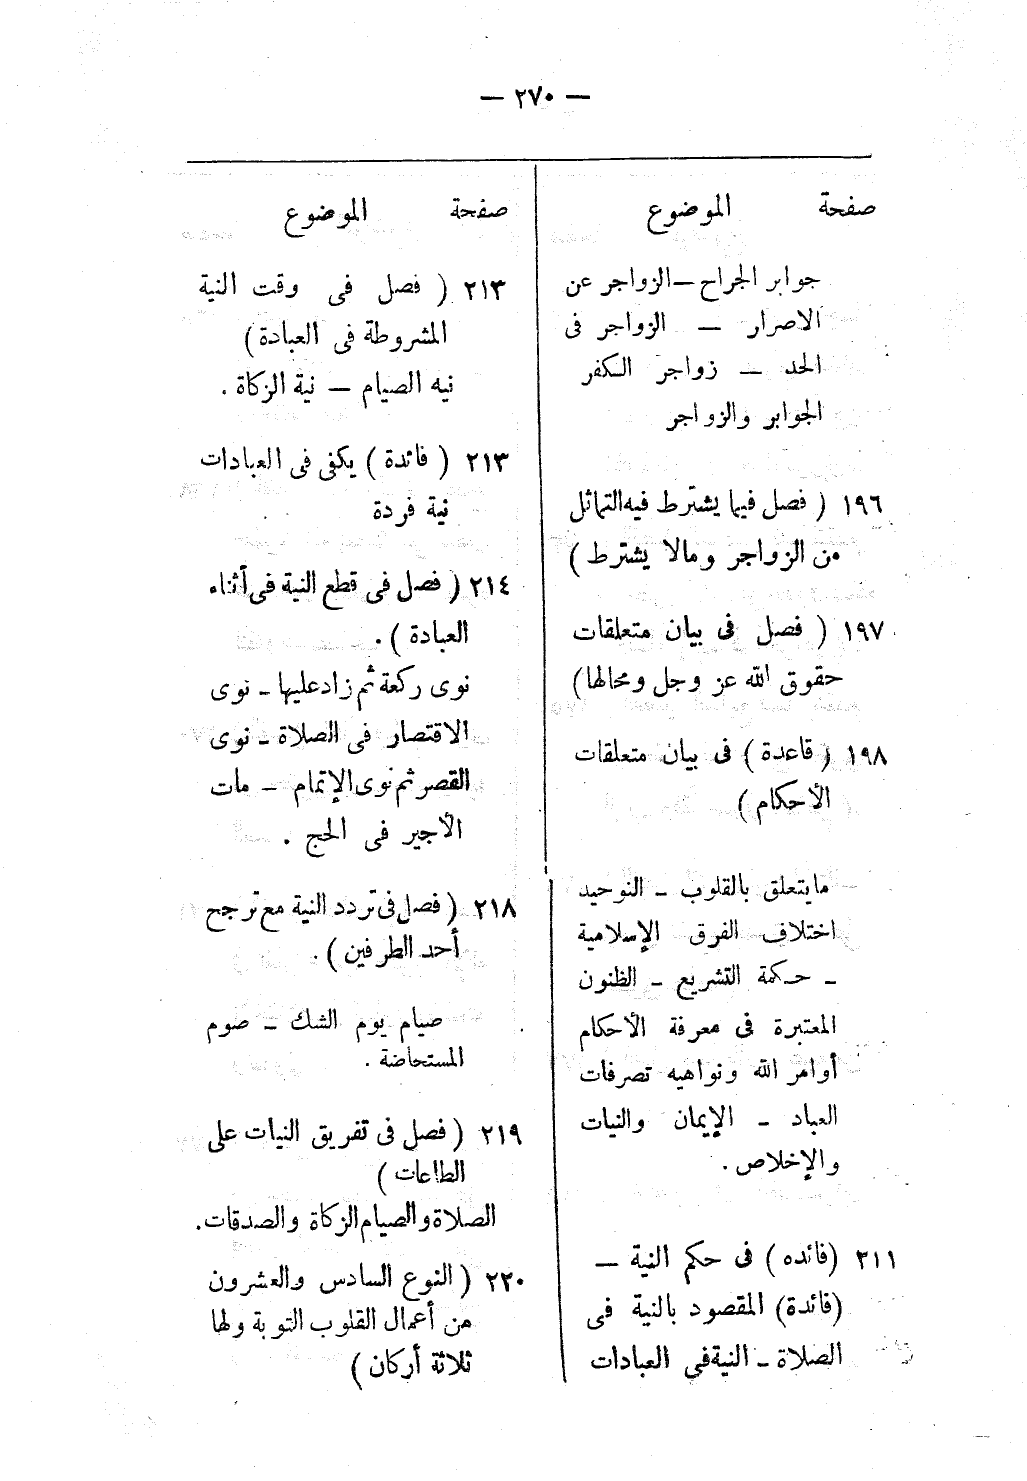 — ٢٧٠ —
صفحة الموضوع
جوابر الجراح – الزواجر عن
الاصرار – الزواجر فى
الحد – زواجر الكفر
الجوابر والزواجر
١٩٦ ( فصل فيما يشترط فيه التماثل
من الزواجر ومالا يشترط )
١٩٧ ( فصل فى بيان متعلقات
حقوق الله عز وجل ومحالها )
١٩٨ ( قاعدة ) فى بيان متعلقات
الأحكام )
ما يتعلق بالقلوب – التوحيد
اختلاف الفرق الإسلامية
– حكمة التشريع – الظنون
المعتبرة فى معرفة الأحكام
أوامر الله ونواهيه تصرفات
العباد – الإيمان والنيات
والإخلاص .
٢١١ (فائده ) فى حكم النية –
(فائدة) المقصود بالنية فى
الصلاة – النية فى العبادات
صفحة الموضوع
٢١٣ ( فصل فى وقت النية
المشروطة فى العبادة )
نيه الصيام – نية الزكاة .
٢١٣ ( فائدة ) يكفى فى العبادات
نية فردة
٢١٤ ( فصل فى قطع النية فى أثناء
العبادة ) .
نوى ركعة ثم زاد عليها – نوى
الاقتصار فى الصلاة – نوى
القصر ثم نوى الإتمام – مات
الأجير فى الحج .
٢١٨ ( فصل فى تردد النية مع ترجح
أحد الطرفين ) .
صيام يوم الشك – صوم
المستحاضة .
٢١٩ ( فصل فى تفريق النيات على
الطاعات )
الصلاة والصيام الزكاة والصدقات .
٢٢٠ ( النوع السادس والعشرون
من أعمال القلوب التوبة ولها
ثلاثة أركان )